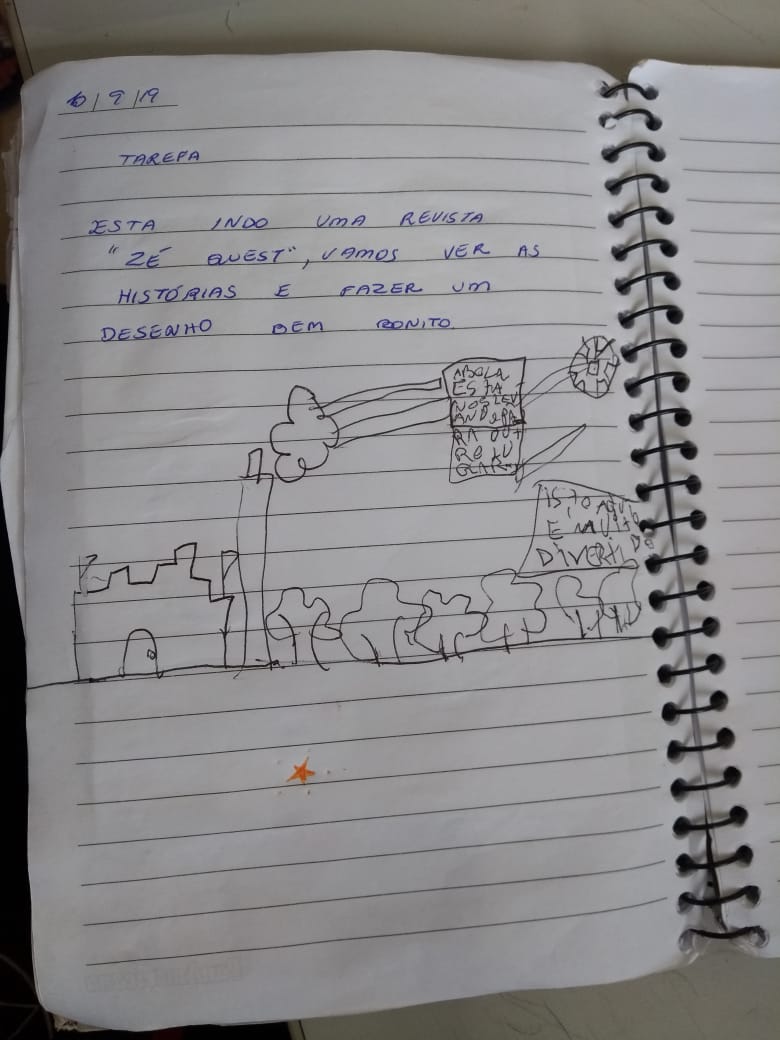 6/9/19
TAREFA
ESTA INDO UMA REVISTA
"ZÉ QUEST", VAMOS VER AS
HISTÓRIAS E FAZER UM
DESENHO BEM BONITO.
ABOLA
ESTA
ISTO AQUI
E MUITO
DIVERTIDO